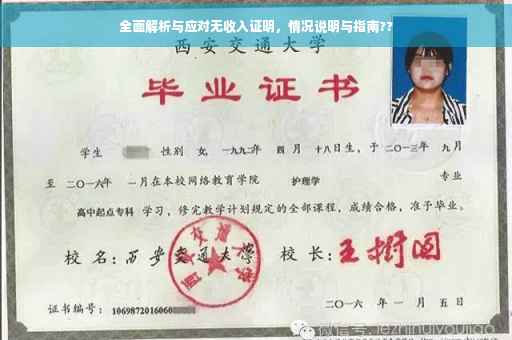 全面解析与应对无收入证明，情况说明与指南??
西安交通大学
毕业证书
学生 性别 女，一九九二年 四 月 十八日生，于 二〇一三年 九月
至 二〇一六年 一月在本校网络教育学院 护理学 专业
高中起点专科 学习，修完教学计划规定的全部课程，成绩合格，准予毕业。
校 名：西安交通大学 校 长：王树国
西安交通大学
证书编号：1069872016060
二〇一六 年 一 月 五 日
微信号: